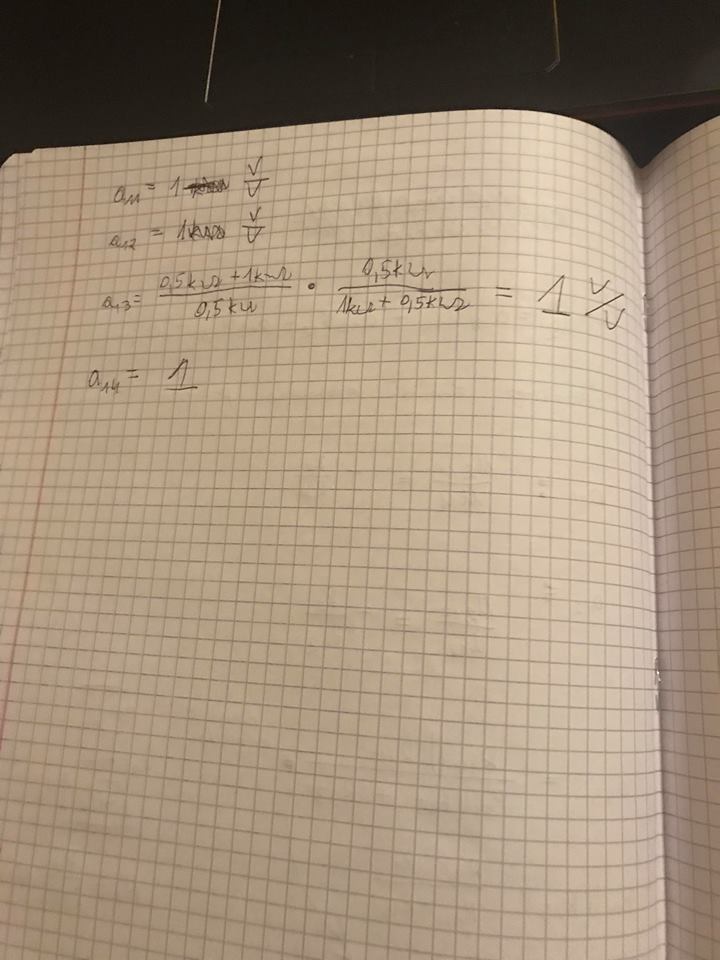 a₁₁ = 1 V/V
a₁₂ = 1 V/V
a₁₃ = (0,5kΩ + 1kΩ)/(0,5kΩ) · (0,5kΩ)/(1kΩ + 0,5kΩ) = 1 V/V
a₁₄ = 1